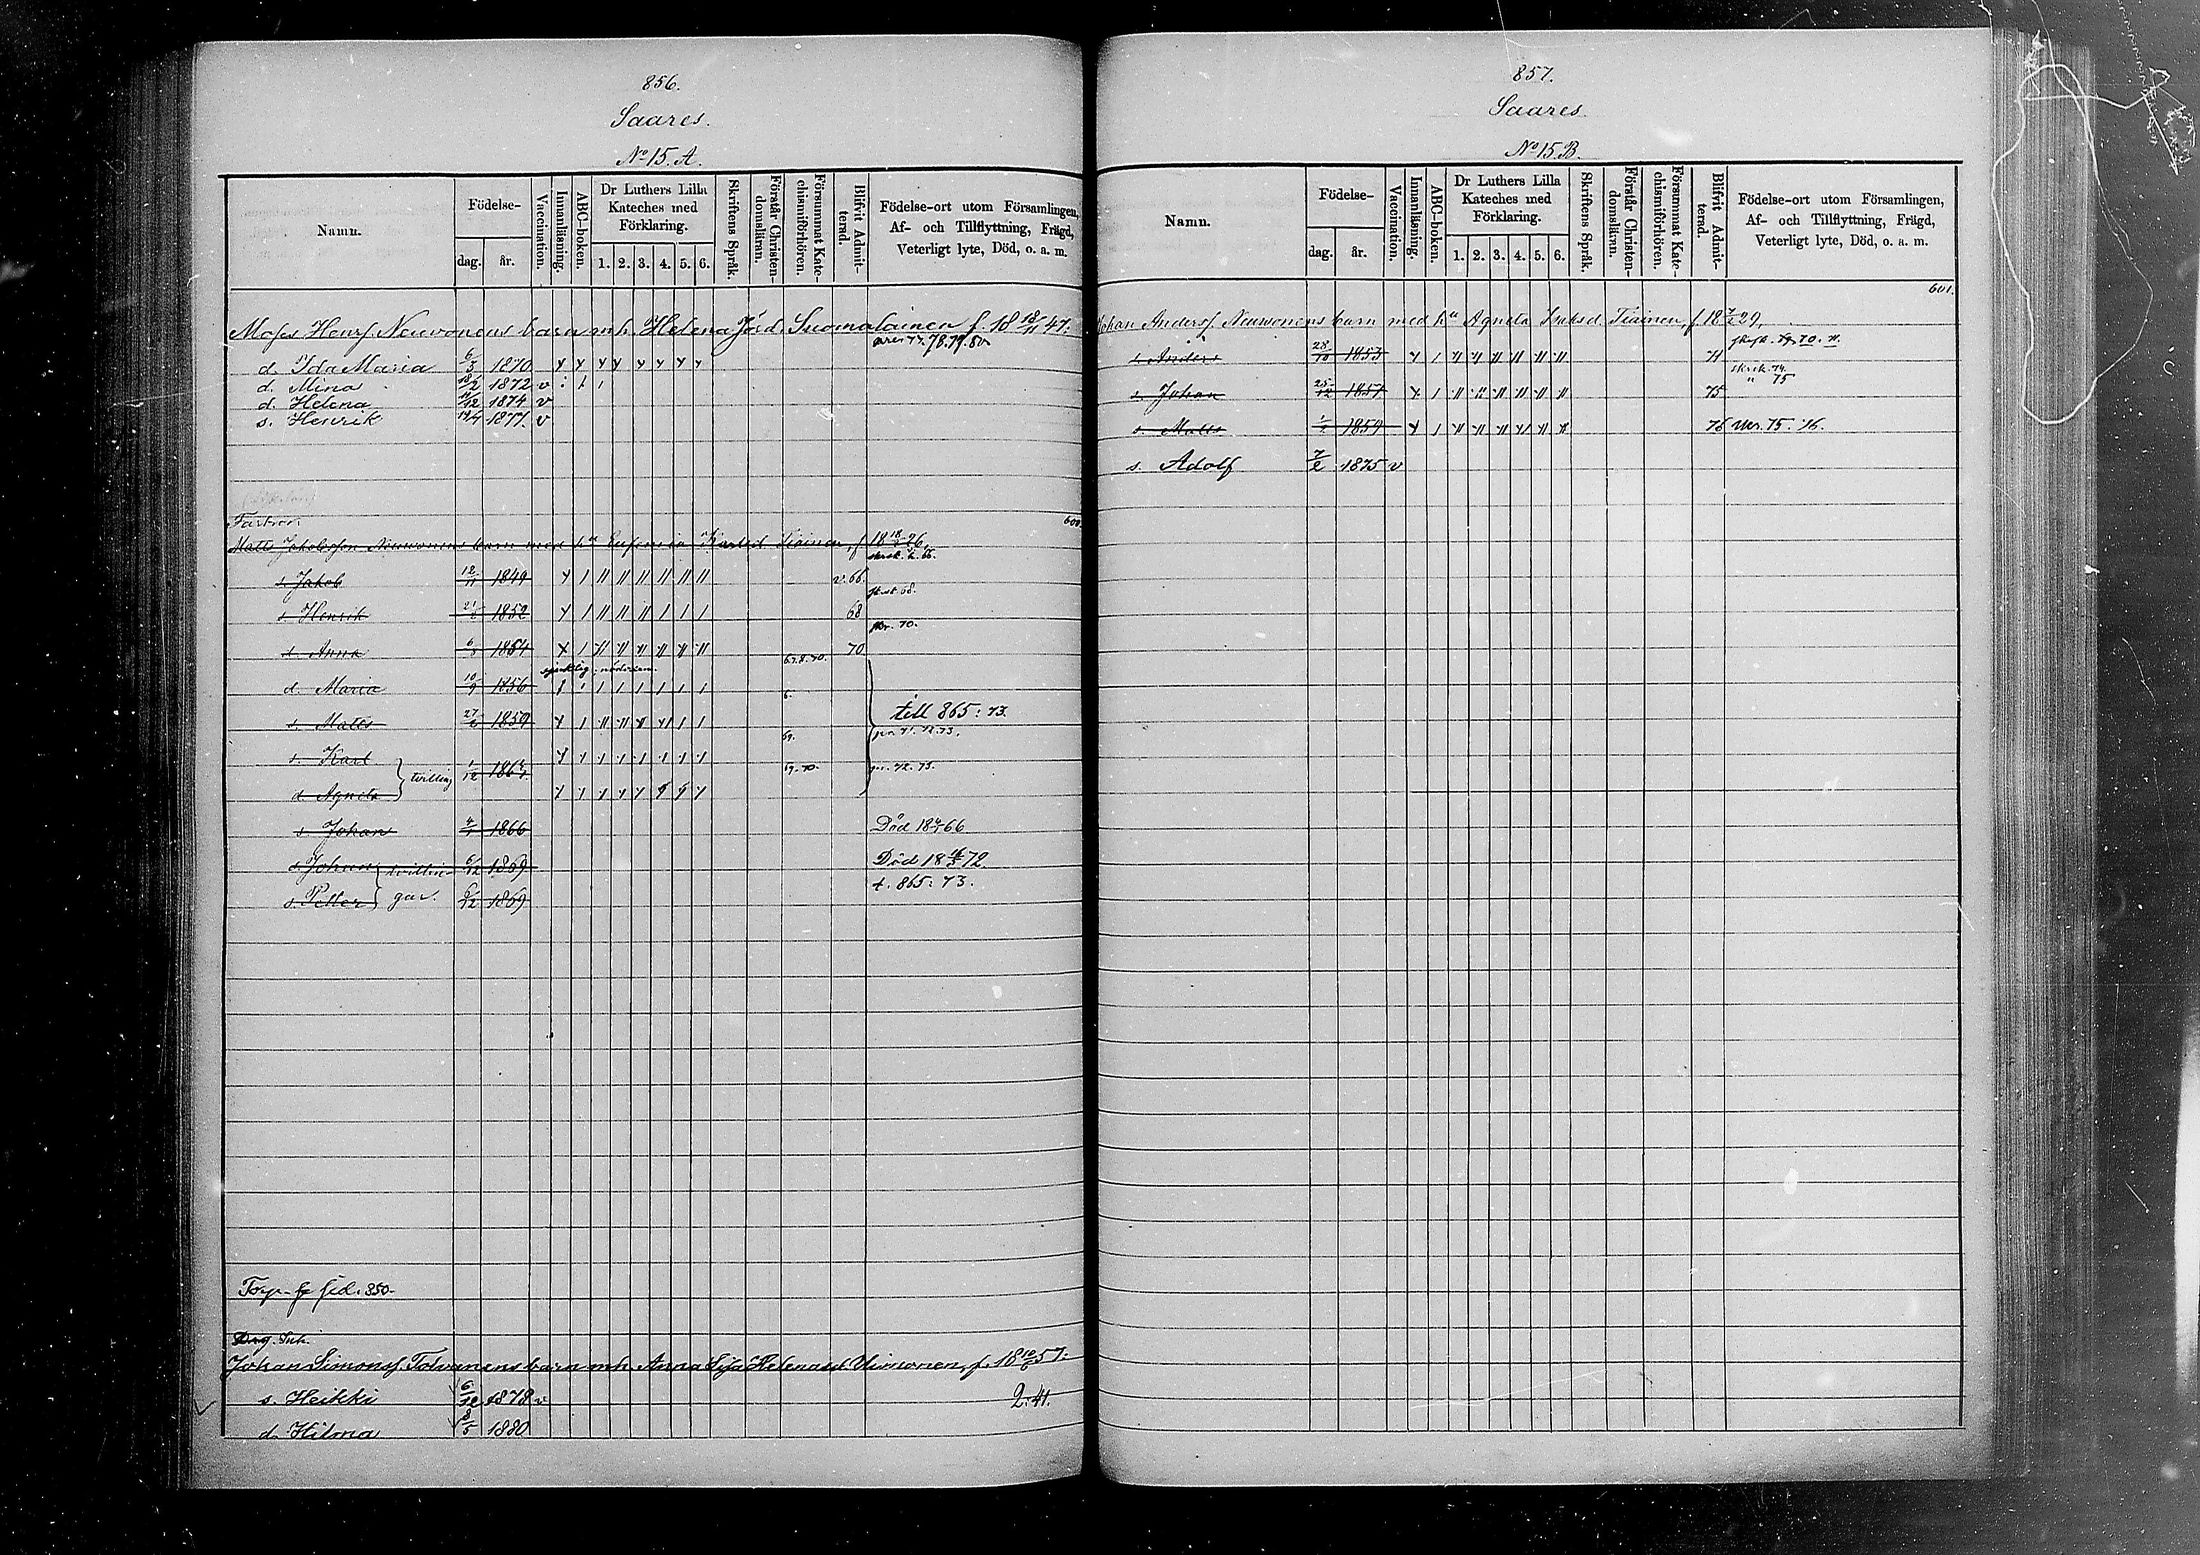 856.
Saares.
No 15. A.
Namn.
Födelse-
dag.
år.
Vaccination.
Innanläsning.
ABC-boken.
Dr Luthers Lilla
Kateches med
Förklaring.
1. 2. 3. 4. 5. 6.
Skriftens Språk.
Förstår Christen-
domsläran.
Försummat Kate-
chismiförhören.
Blifvit Admit-
terad.
Födelse-ort utom Församlingen,
Af- och Tillflyttning, Frägd,
Veterligt lyte, Död, o. a. m.
Moses Henrs. Neuvonens barn m.h. Helena Jörd. Suomalainen f. 18 18/11 47.
77. 78. 79. 80
d. Ida Maria 6/3 1870
d. Mina 18/2 1872 v
d. Helena 11/12 1874 v
s. Henrik 19/4 1877. v
600.
Matts Jakobsson Neuvonens barn med hu Eufemia Karlsd Tiainen, f 18 18/ 26.
s. Jakob 12/11 1849 v. 66.
s. Henrik 21/2 1852 68
d. Anna 6/8 1854 70
70.
67.8.70.
d. Maria 10/9 1856
s. Matts 27/6 1859
till 865: 73.
69.
s. Karl
d. Agneta } tvilling 1/12 1864
69. 70.
72. 73.
s. Johan 4/1 1866 Död 18 4/1 66
s. Johan 6/12 1869 Död 18 16/3 72
s. Petter } tvillin-
gar. 6/12 1869 t. 865: 73.
Torp. sid. 850.
Johan Simons. Tolvanens barn m.h. Anna Lisa Helenasd Uimonen, f. 18 10/6 57.
s. Heikki 6/12 1878 v 2.41.
d. Hilma 8/5 1880
857.
Saares.
No 15. B.
Namn.
Födelse-
dag.
år.
Vaccination.
Innanläsning.
ABC-boken.
Dr Luthers Lilla
Kateches med
Förklaring.
1. 2. 3. 4. 5. 6.
Skriftens Språk.
Förstår Christen-
domsläran.
Försummat Kate-
chismiförhören.
Blifvit Admit-
terad.
Födelse-ort utom Församlingen,
Af- och Tillflyttning, Frägd,
Veterligt lyte, Död, o. a. m.
601.
Johan Anderss. Neuvonens barn med hu Agneta Tiainen, f 18 7/2 29.
s. Anders 28/10 1853 71
s. Johan 25/12 1857 75
s. Matts 1859 76 75. 76.
s. Adolf 7/2 1875 v